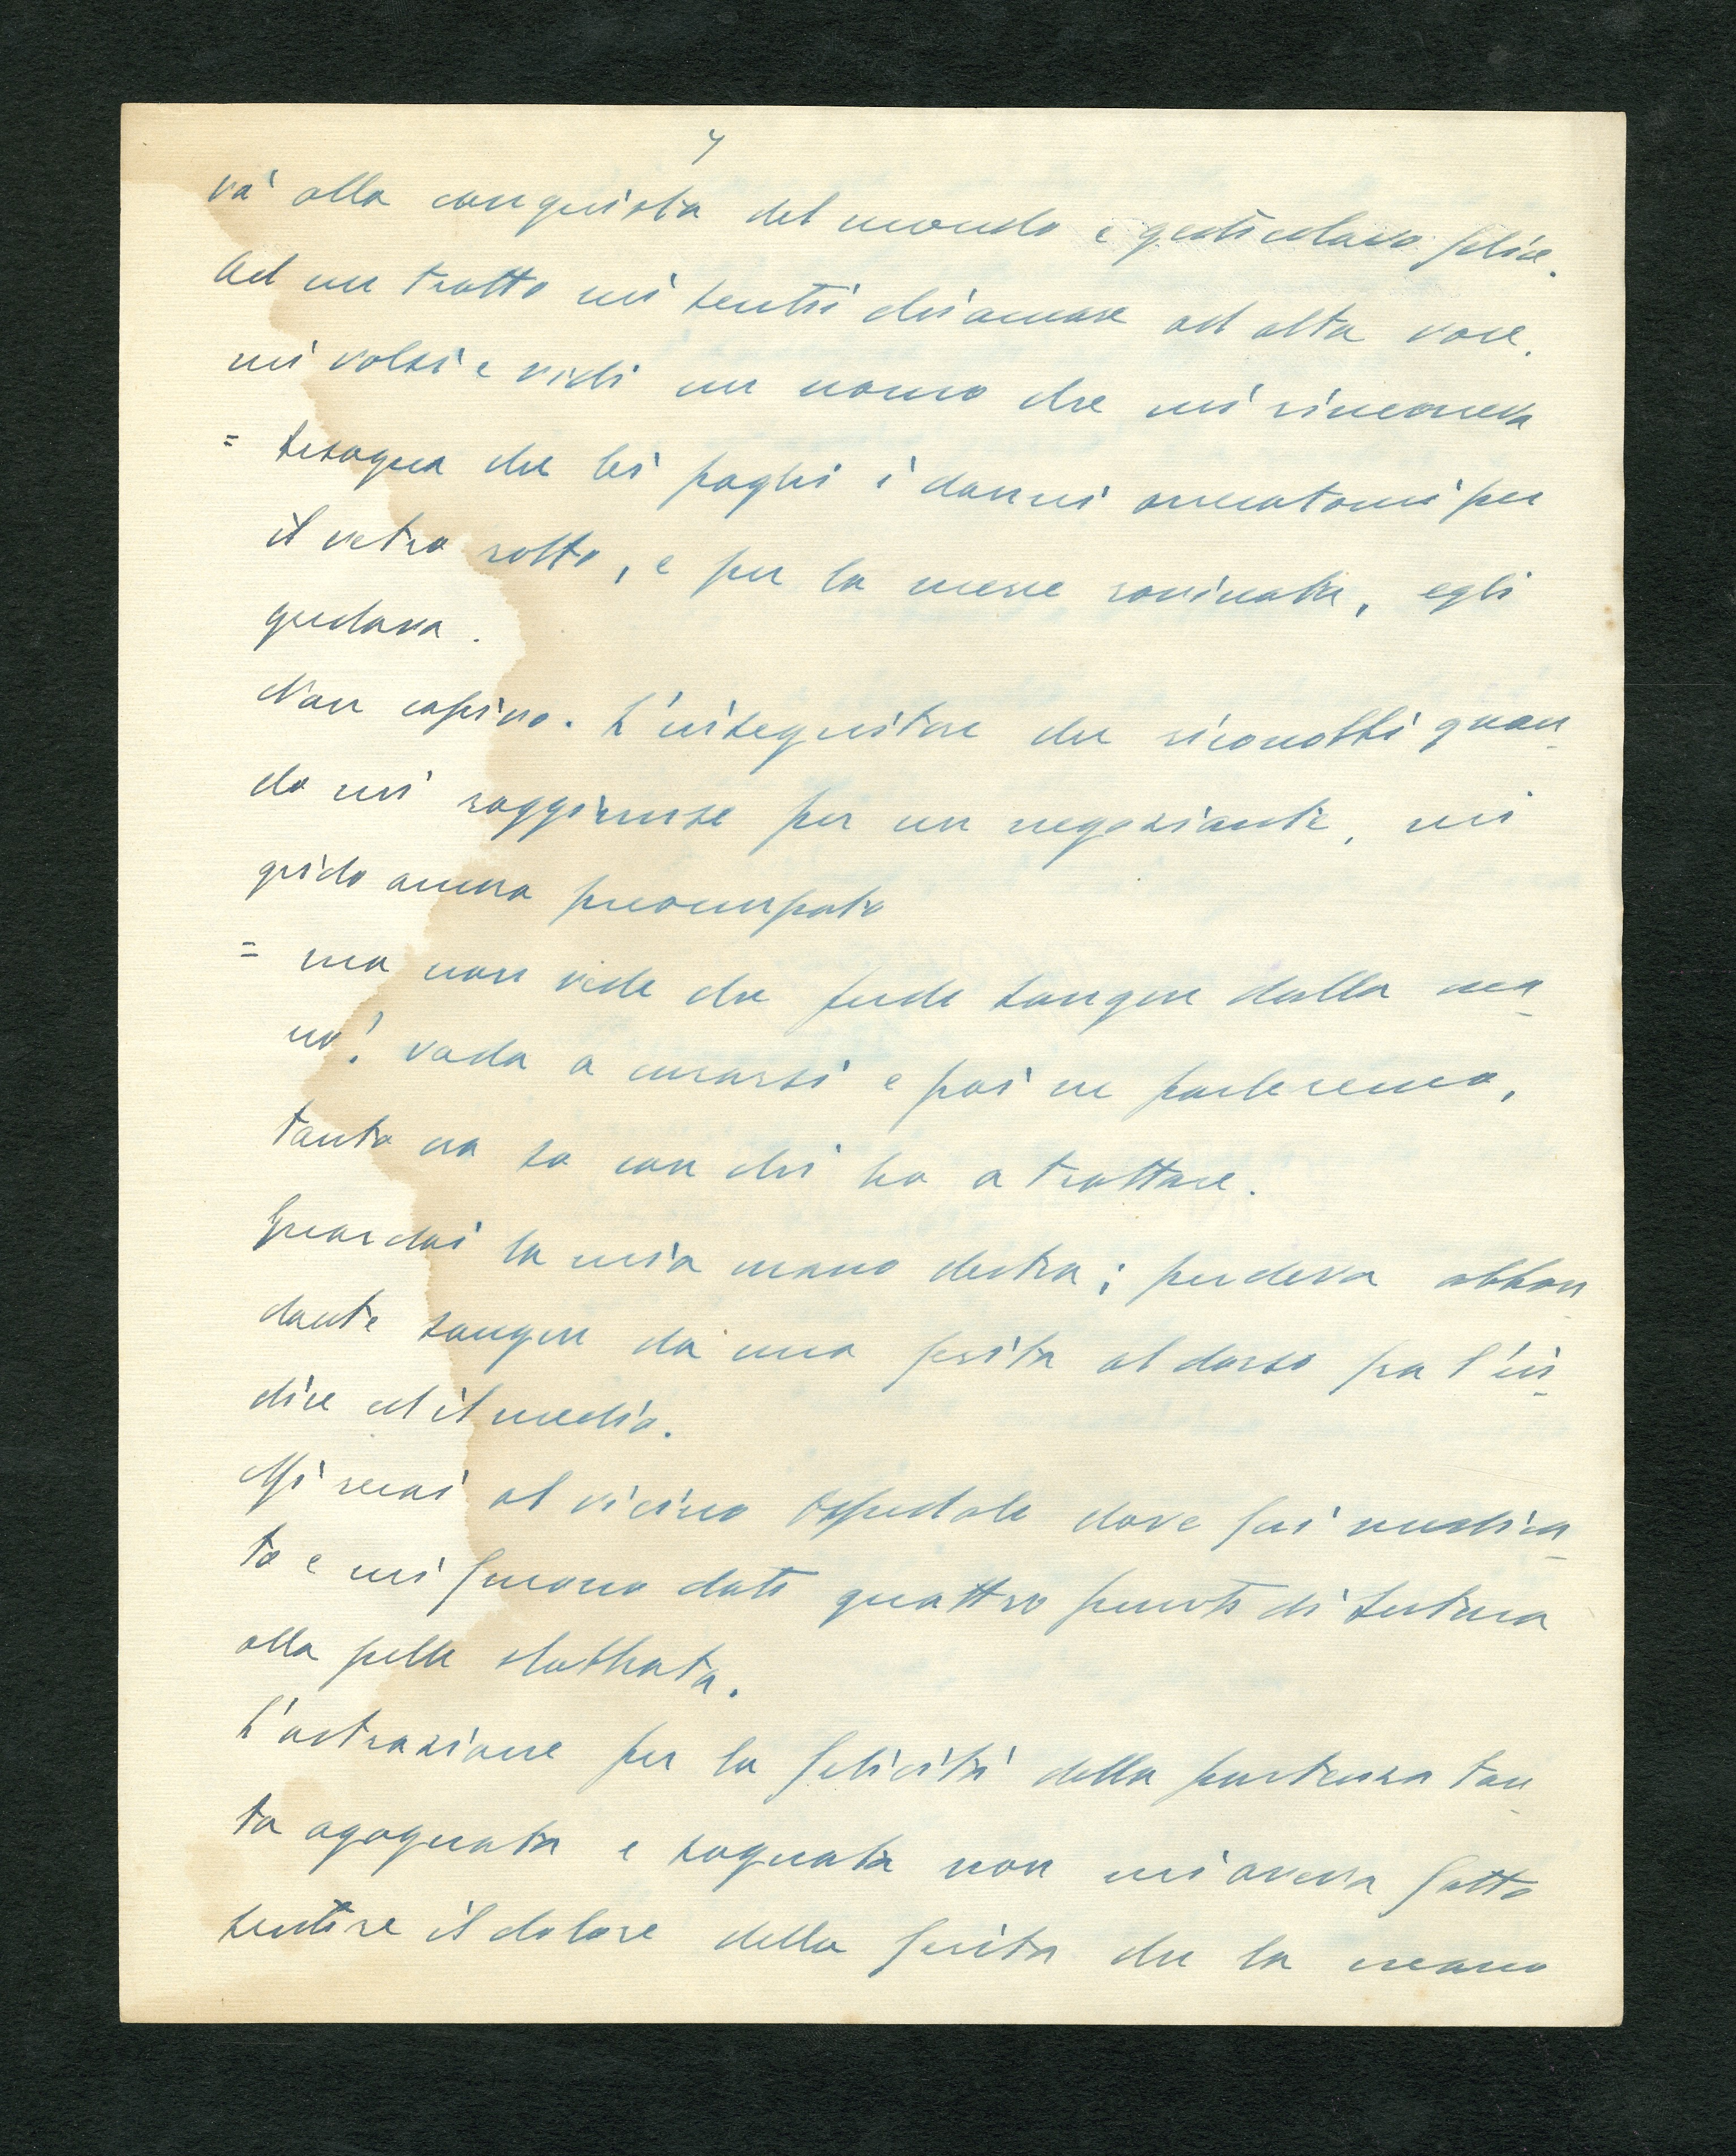 7
va' alla conquista del mondo e gesticolavo felice.
Ad un tratto mi sentii chiamare ad alta voce.
mi volsi e vidi un uomo che mi rincorreva
= bisogna che lei paghi i danni arrecatomi per
il vetro rotto, e per la merce rovinata, egli
gridava.
Non capivo. L'inseguitore che riconobbi quan-
do mi raggiunse per un negoziante, mi
grido ancora preoccupato
= ma non vede che perde sangue dalla ma-
no! vada a curarsi e poi ne parleremo,
tanto so con chi ho a trattare.
Guardai la mia mano destra; perdeva abbon-
dante sangue da una ferita al dorso fra l'in-
dice ed il medio.
Mi recai al vicino Ospedale dove fui medica-
to e mi furono dati quattro punti di sutura
alla pelle slabbrata.
L'astrazione per la felicità della partenza tan-
to agognata e sognata non mi aveva fatto
sentire il dolore della ferita che la mano